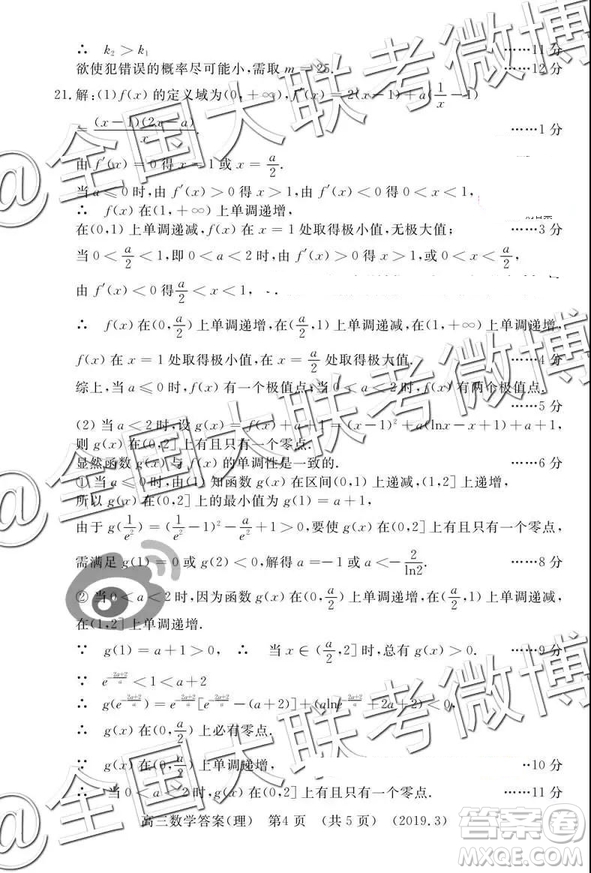 ∴ k₂>k₁ ……11分
欲使犯错误的概率尽可能小,需取m=25. ……12分
21.解:(1)f(x)的定义域为(0,+∞),f′(x)=2(x-1)+a(1/x-1)
=(x-1)(2x-a)/x ……1分
由f′(x)=0得x=1或x=a/2.
当a⩽0时,由f′(x)>0得x>1,由f′(x)<0得0<x<1,
∴ f(x)在(1,+∞)上单调递增,
在(0,1)上单调递减,f(x)在x=1处取得极小值,无极大值; ……3分
当0<a/2<1,即0<a<2时,由f′(x)>0得x>1,或0<x<a/2,
由f′(x)<0得a/2<x<1,
∴ f(x)在(0,a/2)上单调递增,在(a/2,1)上单调递减,在(1,+∞)上单调递增,
f(x)在x=1处取得极小值,在x=a/2处取得极大值. ……4分
综上,当a⩽0时,f(x)有一个极值点;当0<a<2时,f(x)有两个极值点.
……5分
(2)当a<2时,设g(x)=f(x)+a+1=(x-1)²+a(lnx-x+1)+a+1,
则g(x)在(0,2]上有且只有一个零点.
显然函数g(x)与f(x)的单调性是一致的. ……6分
①当a⩽0时,由(1)知函数g(x)在区间(0,1)上递减,(1,2]上递增,
所以g(x)在(0,2]上的最小值为g(1)=a+1,
由于g(1/e²)=(1/e²-1)²-a/e²+1>0,要使g(x)在(0,2]上有且只有一个零点,
需满足g(1)=0或g(2)<0,解得a=-1或a<-2/ln2. ……8分
②当0<a<2时,因为函数g(x)在(0,a/2)上单调递增,在(a/2,1)上单调递减,
在(1,2]上单调递增.
∵ g(1)=a+1>0, ∴ 当x∈(a/2,2]时,总有g(x)>0. ……9分
∵ e^(-(2a+2)/a)<1<a+2
∴ g(e^(-(2a+2)/a))=e^(-(2a+2)/a)[e^(-(2a+2)/a)-(a+2)]+(alne^(-(2a+2)/a)+2a+2)<0
∴ g(x)在(0,a/2)上必有零点.
∵ g(x)在(0,a/2)上单调递增, ··10分
∴ 当0<a<2时,g(x)在(0,2]上有且只有一个零点. ……11分
高三数学答案(理) 第4页 (共5页) (2019.3)
@全国大联考微博
@全国大联考微博
@全国大联考微博
答案圈
MXQE.COM